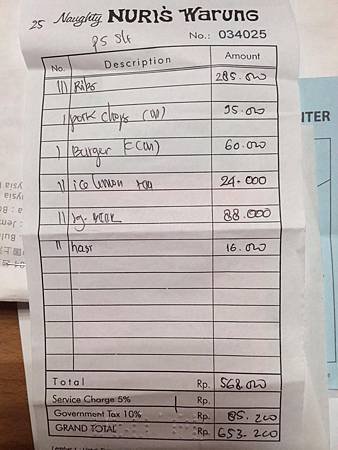 25 Naughty NURI'S WARUNG
No.: 034025
No. Description Amount
||| Ribs 285.000
| pork chops 95.000
| Burger 60.000
|| ice lemon tea 24.000
|| 88.000
|| nasi 16.000
Total Rp. 568.000
Service Charge 5% Rp.
Government Tax 10% Rp. 85.200
GRAND TOTAL Rp. 653.200
NTER